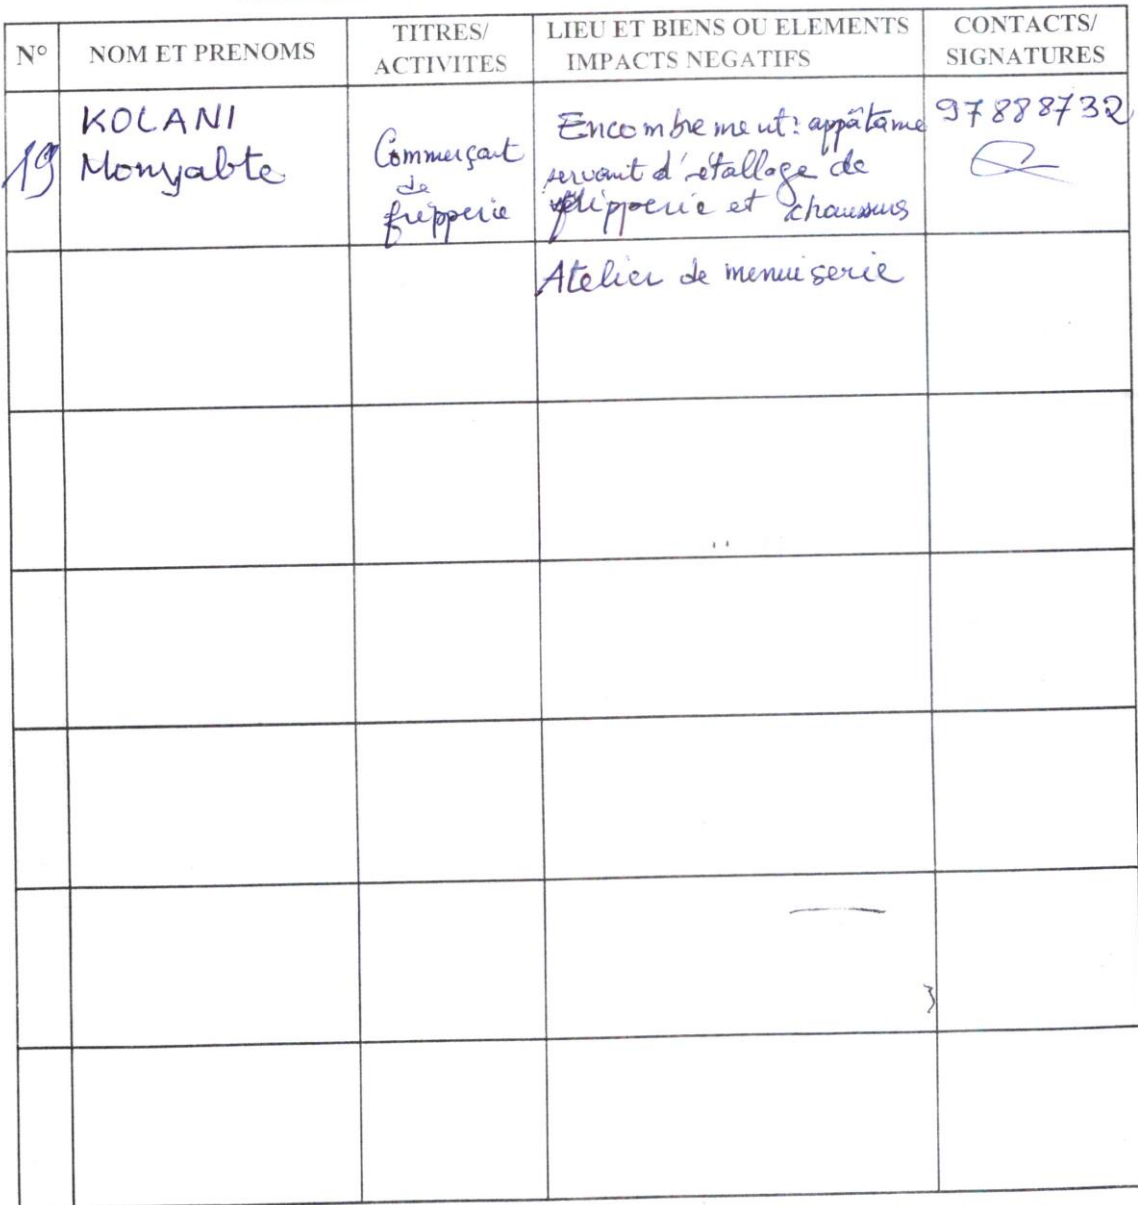 N°
NOM ET PRENOMS
TITRES/
ACTIVITES
LIEU ET BIENS OU ELEMENTS
IMPACTS NEGATIFS
CONTACTS/
SIGNATURES
19
KOLANI
Monyabte
Commerçant
de
fripperie
Encombrement: appâtame
servant d'étallage de
flipperie et chaussurs
97888732
Atelier de menuiserie